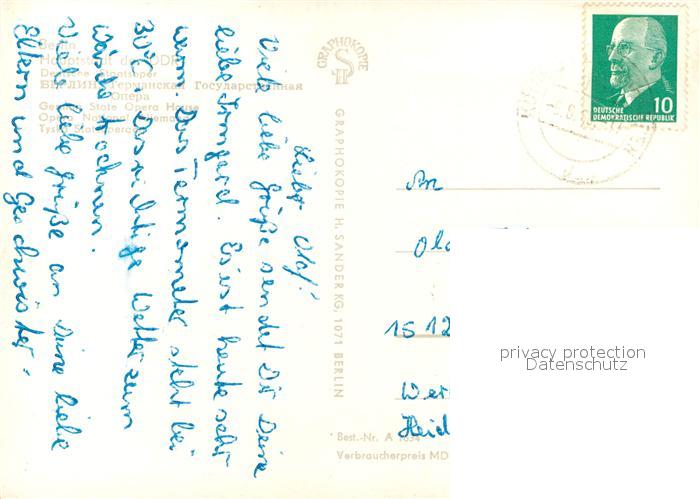 Berlin
Hauptstadt der DDR
Deutsche Staatsoper
БЕРЛИН. Германская Государственная
Опера
German State Opera House
Opéra National
GRAPHOKOPIE
GRAPHOKOPIE H. SANDER KG, 1071 BERLIN
DEUTSCHE
DEMOKRATISCHE REPUBLIK
10
Lieber Olaf!
Viele liebe Grüße sendet Dir Deine
liebe Irmgard. Es ist heute sehr
warm. Das Termometer steht bei
30°C. Das richtige Wetter zum
Wäsche trocknen.
Viele liebe Grüße an Deine liebe
Eltern und Geschwister.
An
Ola
1512
Wer
Heid
Best.-Nr. A 1634
Verbraucherpreis MD
privacy protection
Datenschutz